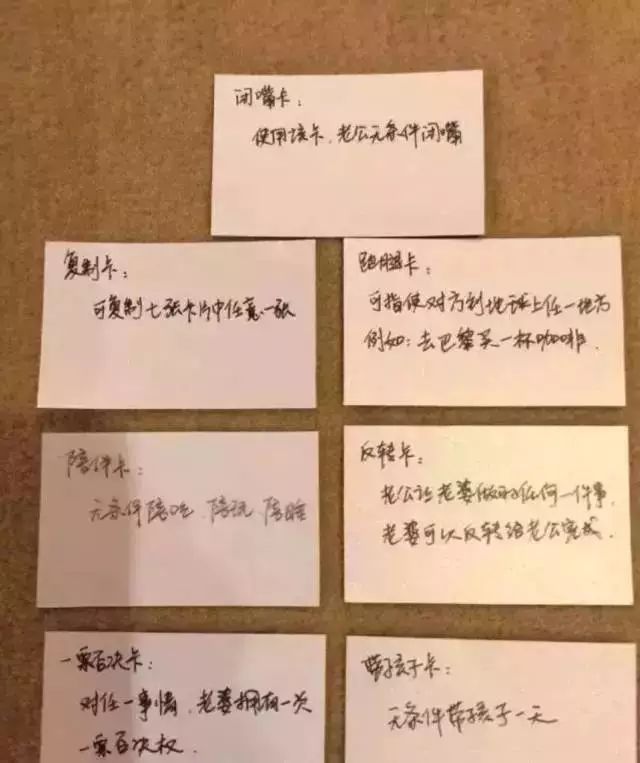 闭嘴卡：
使用该卡，老公无条件闭嘴
复制卡：
可复制七张卡片中任意一张
跑腿卡：
可指使对方到地球上任一地方
例如：去巴黎买一杯咖啡．
陪伴卡：
无条件陪吃、陪玩、陪睡
反转卡：
老公让老婆做的任何一件事，
老婆可以反转给老公完成．
一票否决卡：
对任一事情，老婆拥有一次
一票否决权．
带孩子卡：
无条件带孩子一天